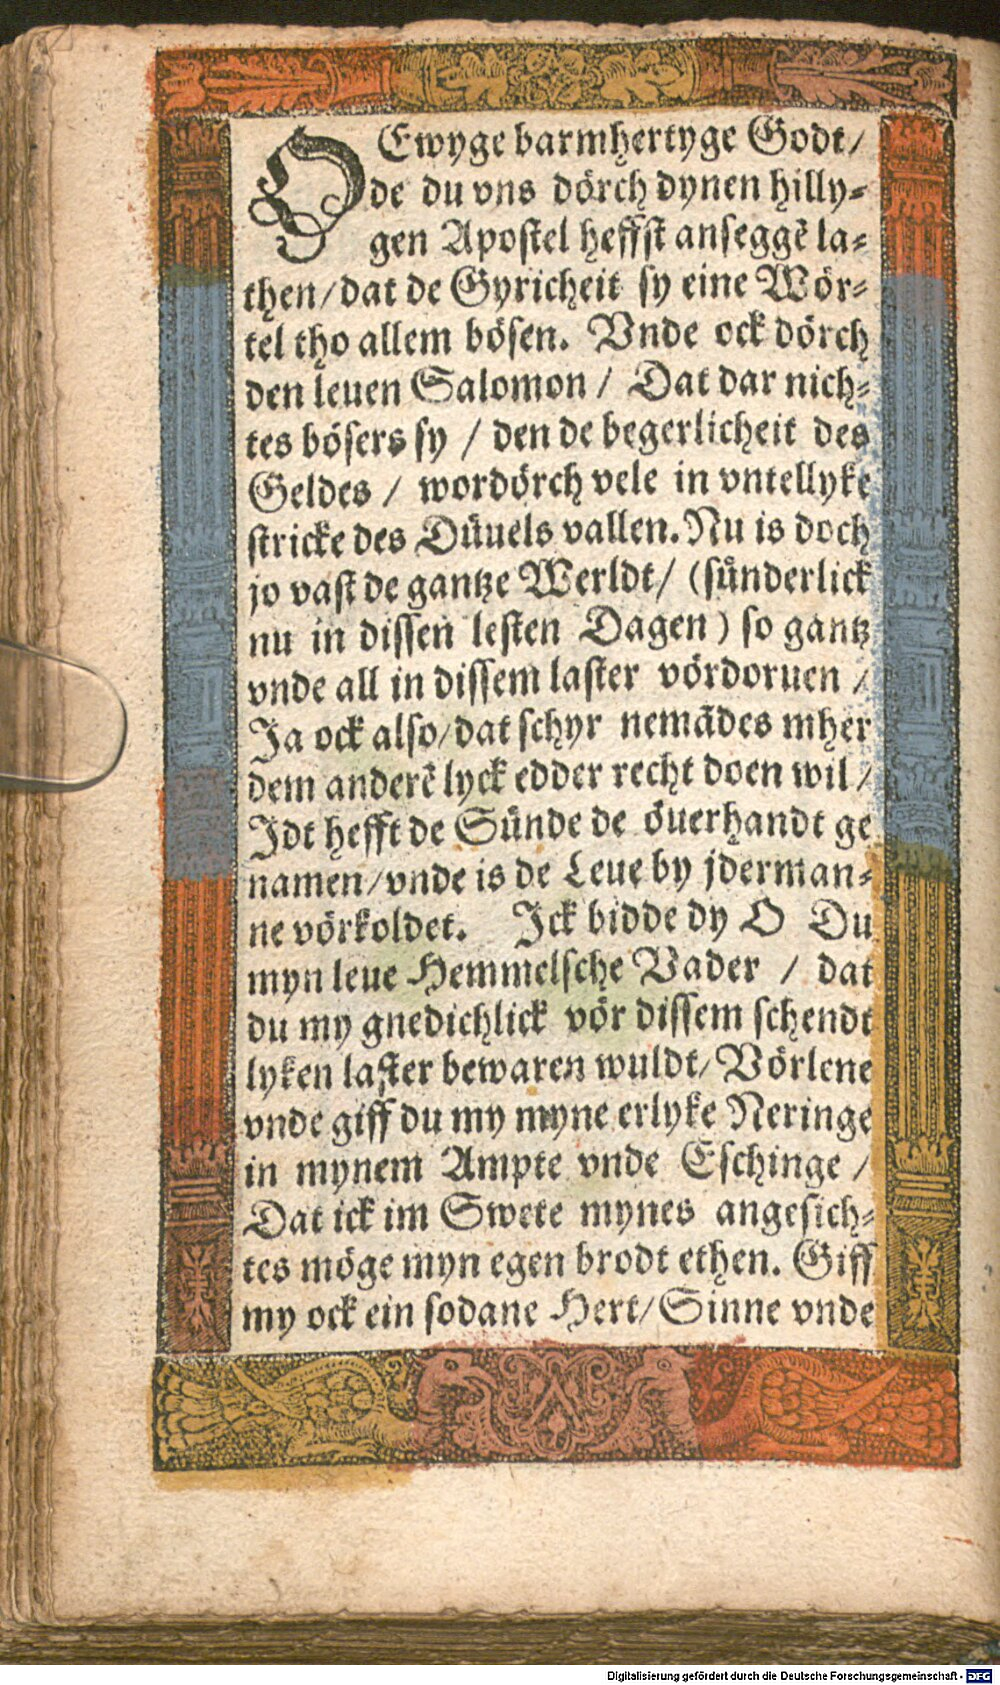 O Ewyge barmhertyge Godt/
de du vns dörch dynen hilly⸗
gen Apostel heffst anseggē la⸗
then/dat de Gyricheit sy eine Wör⸗
tel tho allem bösen. Vnde ock dörch
den leuen Salomon / Dat dar nich⸗
tes bösers sy / den de begerlicheit des
Geldes / wordörch vele in vntellyke
stricke des Düuels vallen. Nu is doch
jo vast de gantze Werldt/ (sünderlick
nu in dissen lesten Dagen) so gantz
vnde all in dissem laster vördoruen /
Ja ock also/dat schyr nemādes mher
dem anderē lyck edder recht doen wil /
Idt hefft de Sünde de öuerhandt ge
namen/vnde is de Leue by jderman⸗
ne vörkoldet. Ick bidde dy O Du
myn leue Hemmelsche Vader / dat
du my gnedichlick vör dissem schendt
lyken laster bewaren wuldt/Vörlene
vnde giff du my myne erlyke Neringe
in mynem Ampte vnde Eschinge /
Dat ick im Swete mynes angesich⸗
tes möge myn egen brodt ethen. Giff
my ock ein sodane Hert/Sinne vnde
Digitalisierung gefördert durch die Deutsche Forschungsgemeinschaft - DFG